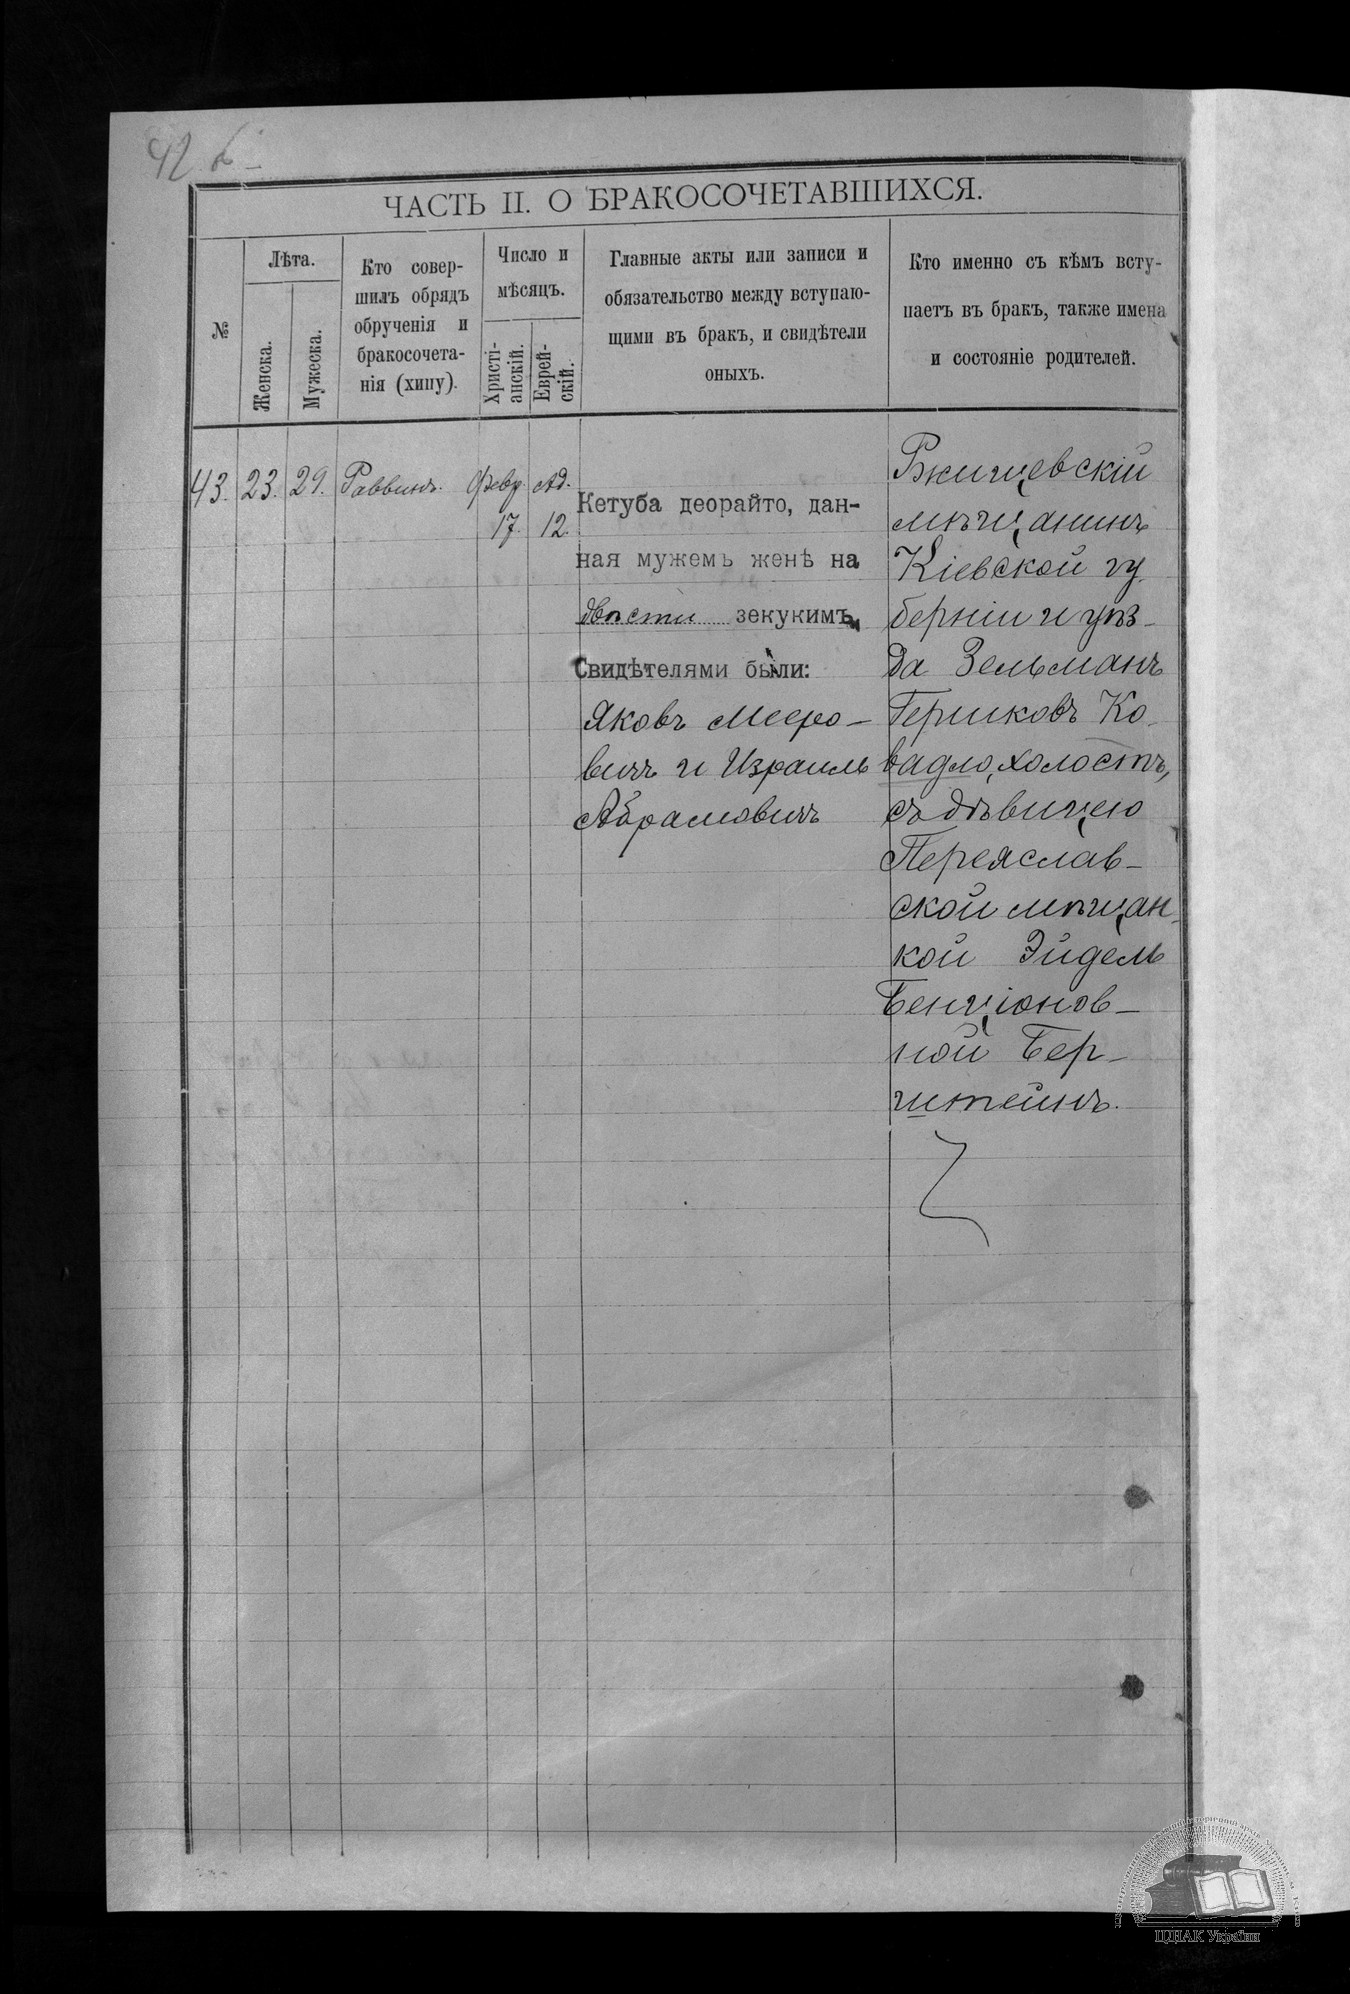 42 б
ЧАСТЬ II. О БРАКОСОЧЕТАВШИХСЯ.
№
Лѣта.
Женска.
Мужеска.
Кто совер-
шилъ обрядъ
обрученія и
бракосочета-
нія (хипу).
Число и
мѣсяцъ.
Христі-
анскій.
Еврей-
скій.
Главные акты или записи и
обязательство между вступаю-
щими въ бракъ, и свидѣтели
оныхъ.
Кто именно съ кѣмъ всту-
паетъ въ бракъ, также имена
и состояніе родителей.
43. 23. 29. Раввинъ. Февр. Ад.
17. 12.
Кетуба деорайто, дан-
ная мужемъ женѣ на
двѣсти зекукимъ
Свидѣтелями были:
Яковъ Мееро-
вичъ и Израиль
Абрамовичъ
Ржищевскій
мѣщанинъ
Кіевской гу
берніи и уѣз-
да Зельманъ
Гершковъ Ко-
вадло, холостъ,
съ дѣвицею
Переяслав-
ской мѣщан-
кой Эйдель
Бенціонов-
ной Бер-
штейнъ.
ЦДІАК України